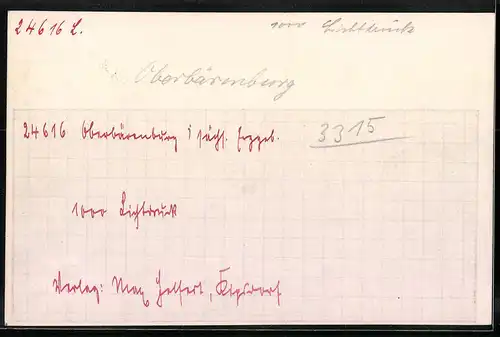 24616 L.
1000 Lichtdruck
Oberbärenburg
24616 Oberbärenburg i sächs. Erzgeb.
3315
1000 Lichtdruck
Verlag: Max Helfert, Kipsdorf